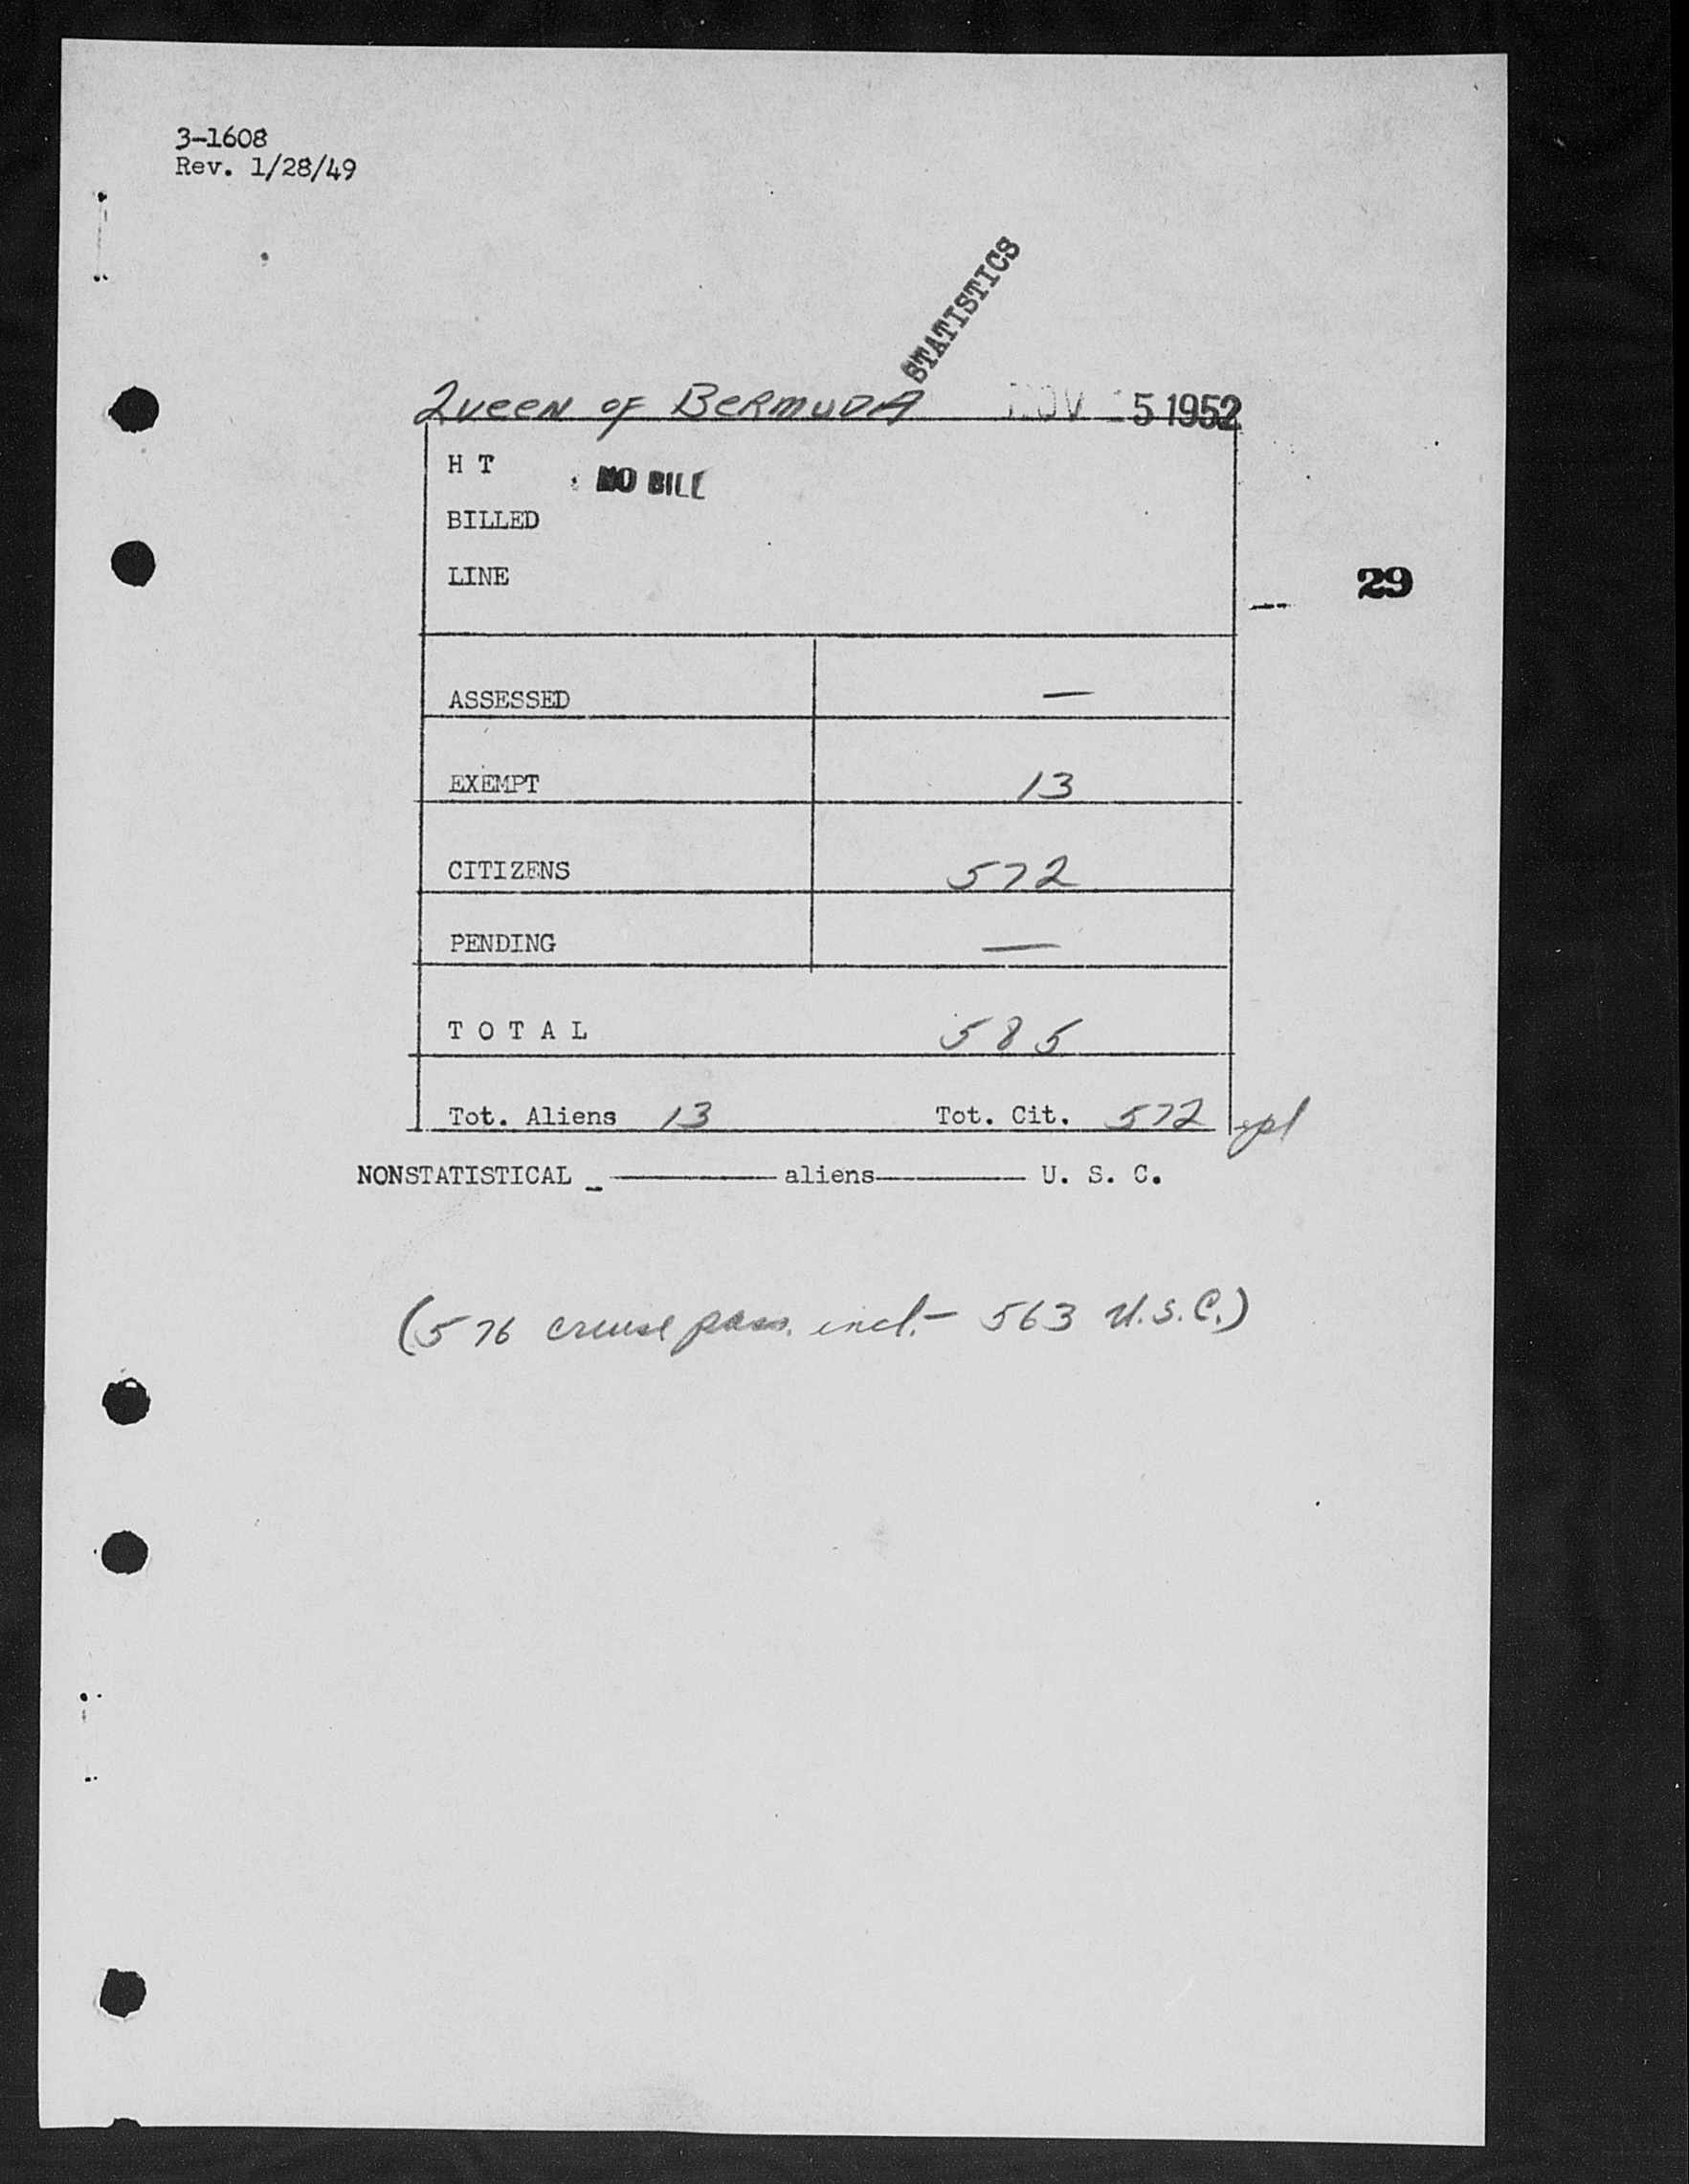 3-1608
Rev. 1/28/49
STATISTICS
Queen of Bermuda NOV 5 1952
H T
NO BILL
BILLED
LINE
29
ASSESSED —
EXEMPT 13
CITIZENS 572
PENDING —
T O T A L 585
Tot. Aliens 13 Tot. Cit. 572
NONSTATISTICAL _ ———— aliens ———— U. S. C.
(576 cruise pass. incl.- 563 U.S.C.)